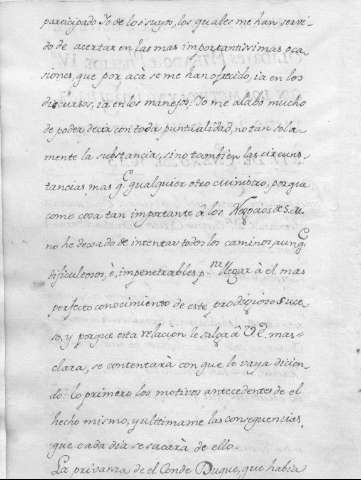 participado Yo de los suyos, los quales me han servi-
do de acertar en las mas importantissimas oca-
siones que por acà se me han ofrecido, ia en los
discursos, ia en los manejos. Yo me alabo mucho
de poder decir con toda puntualidad, no tan sola-
mente la substancia, sino tambien las circuns-
tancias mas q̃ qualquier otro ministro, porque
como cosa tan importante à los Negocios de S.
no he dexado de intentar todos los caminos aunq̃
dificultosos, è, impenetrables p.ª llegar à el mas
perfecto conocimiento de este prodigioso suce-
so, y porque esta relacion le salga à V.E. mas
clara, se contentarà con que le vaya dicien-
do: lo primero los motivos antecedentes de el
hecho mismo, y ultimam.te las consequencias,
que cada dia se sacarà de ello.
La privanza de el Conde Duque, que habia